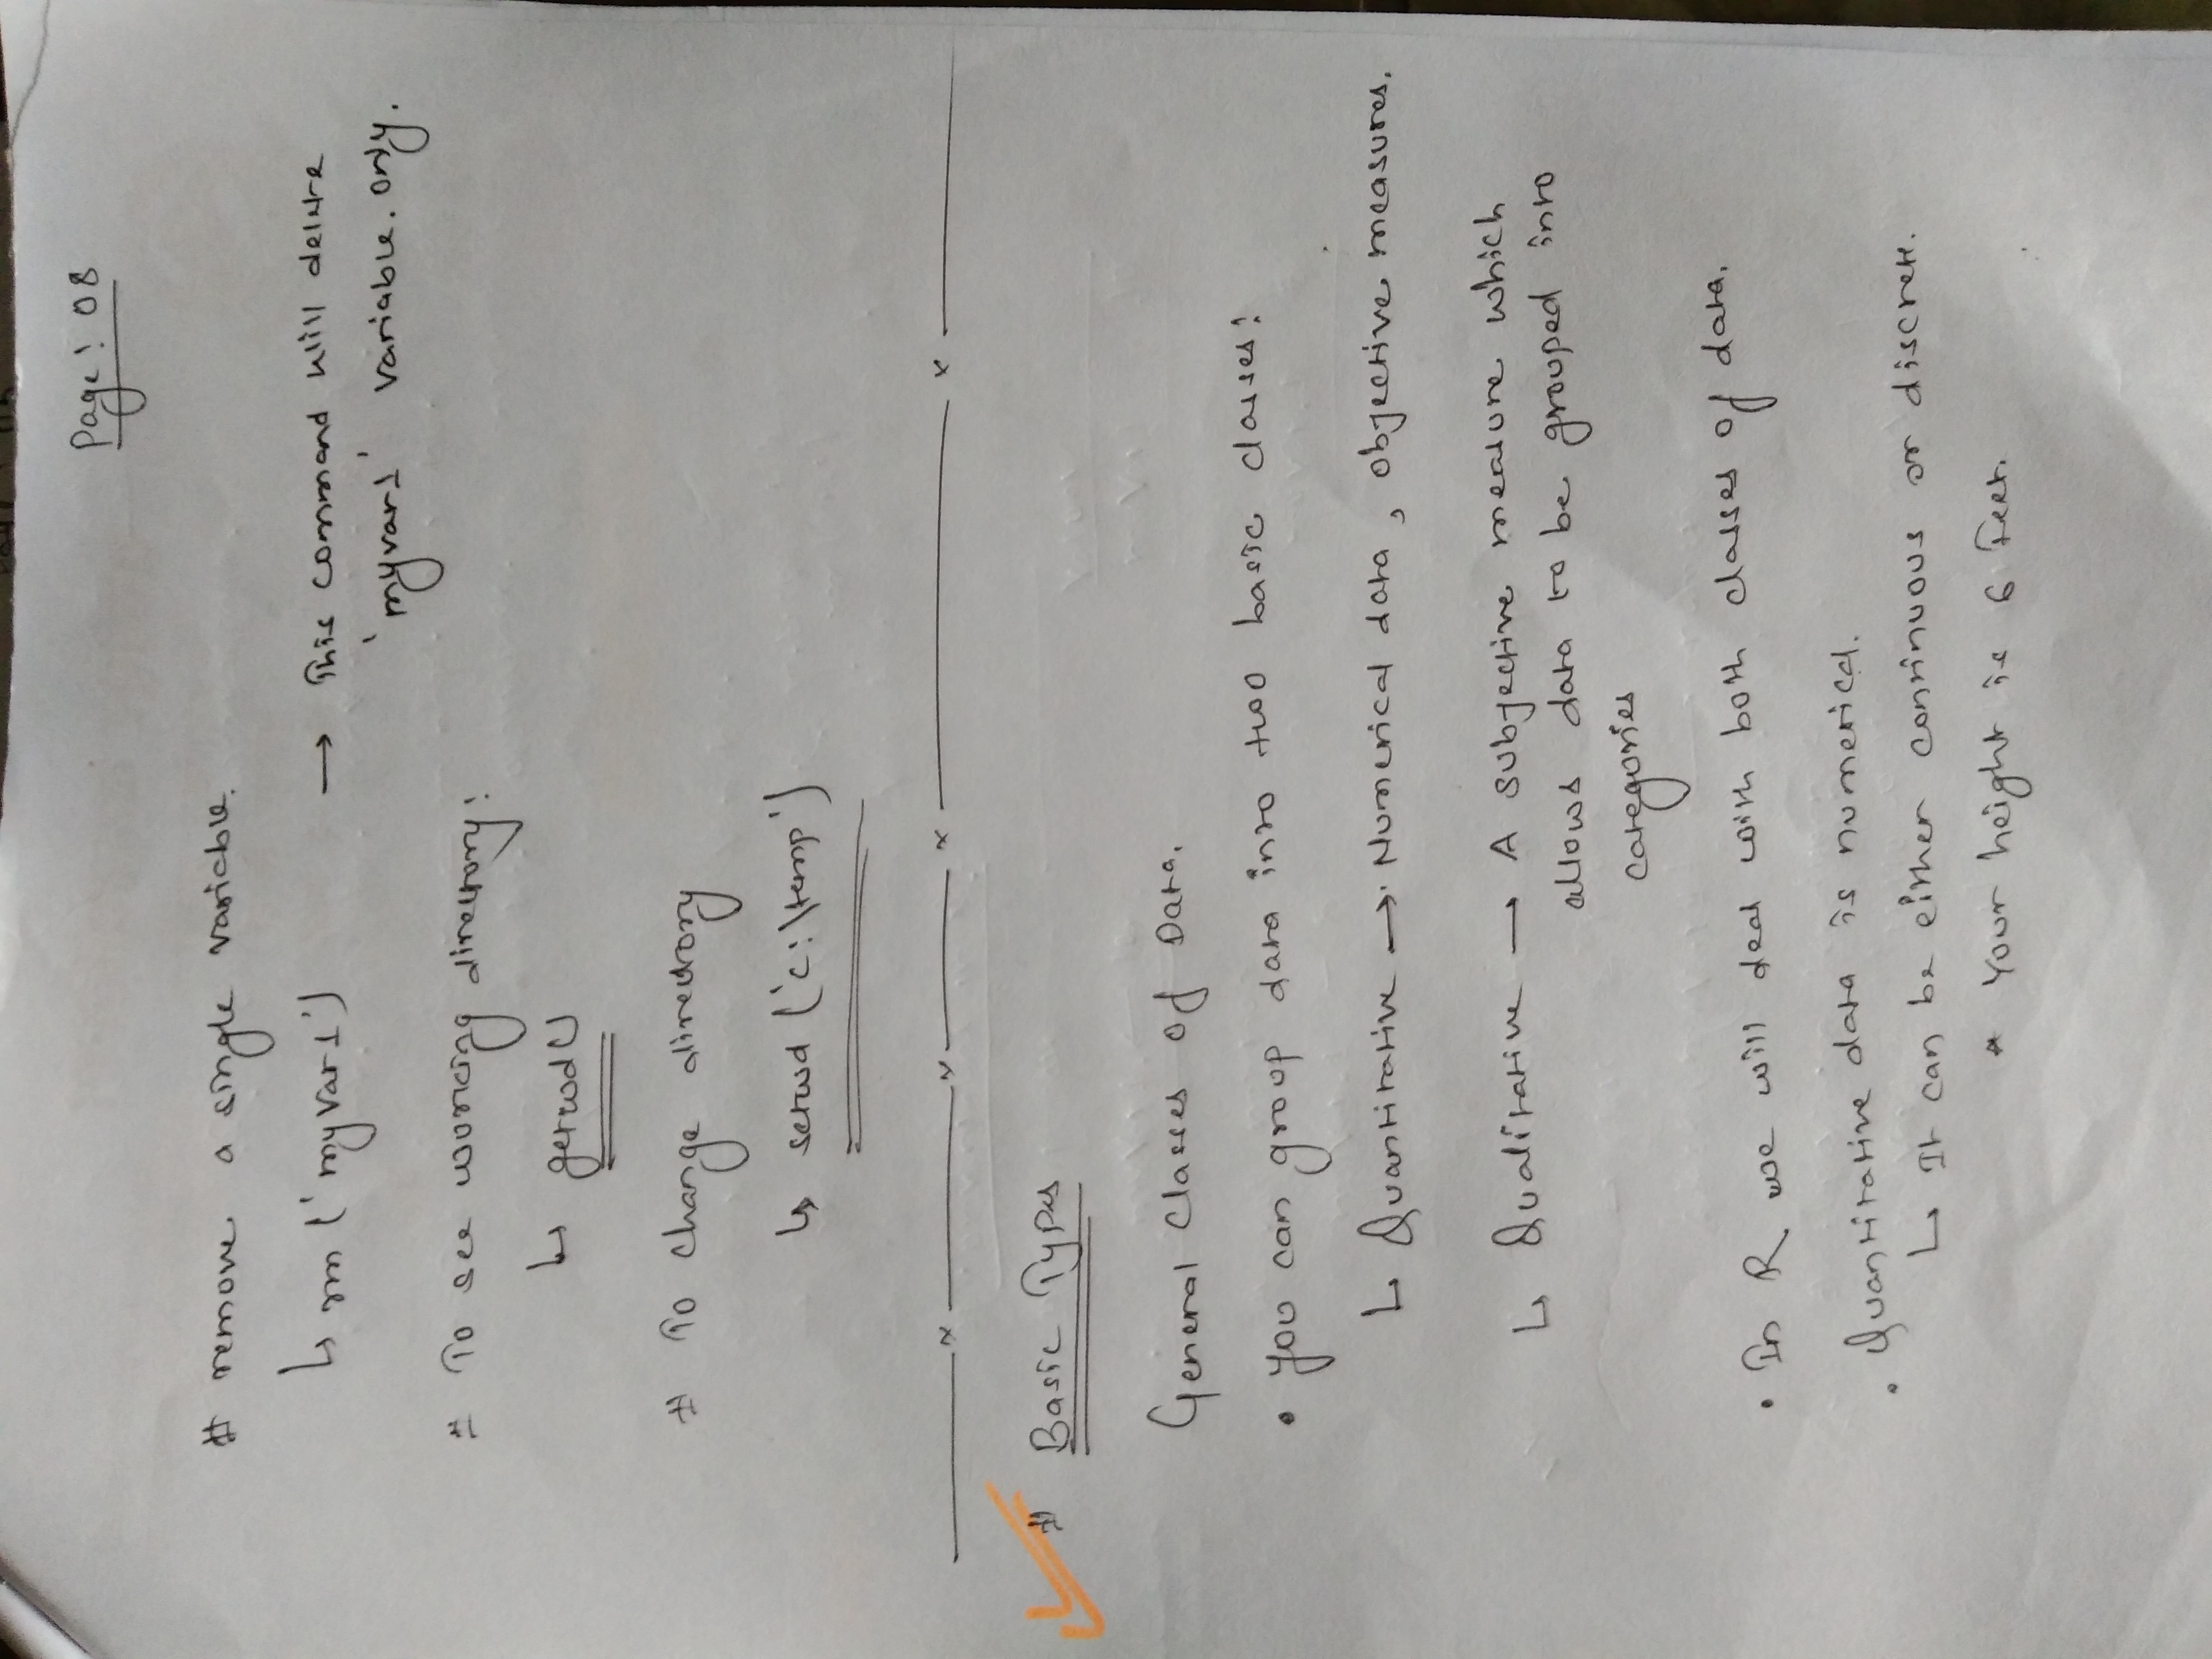 Page: 08
# remove a single variable.
↳ rm ('myvar1') → This command will delete
'myvar1' variable. only.
# To see working directory:
↳ getwd()
# To change directory
↳ setwd ('c:\temp')
# Basic Types
General Classes of Data.
• you can group data into two basic classes:
↳ Quantitative → Numerical data, objective measures.
↳ Qualitative → A subjective measure which
allows data to be grouped into
categories
• In R we will deal with both classes of data.
• Quantitative data is numerical.
↳ It can be either continuous or discrete.
* Your height is 6 feet.